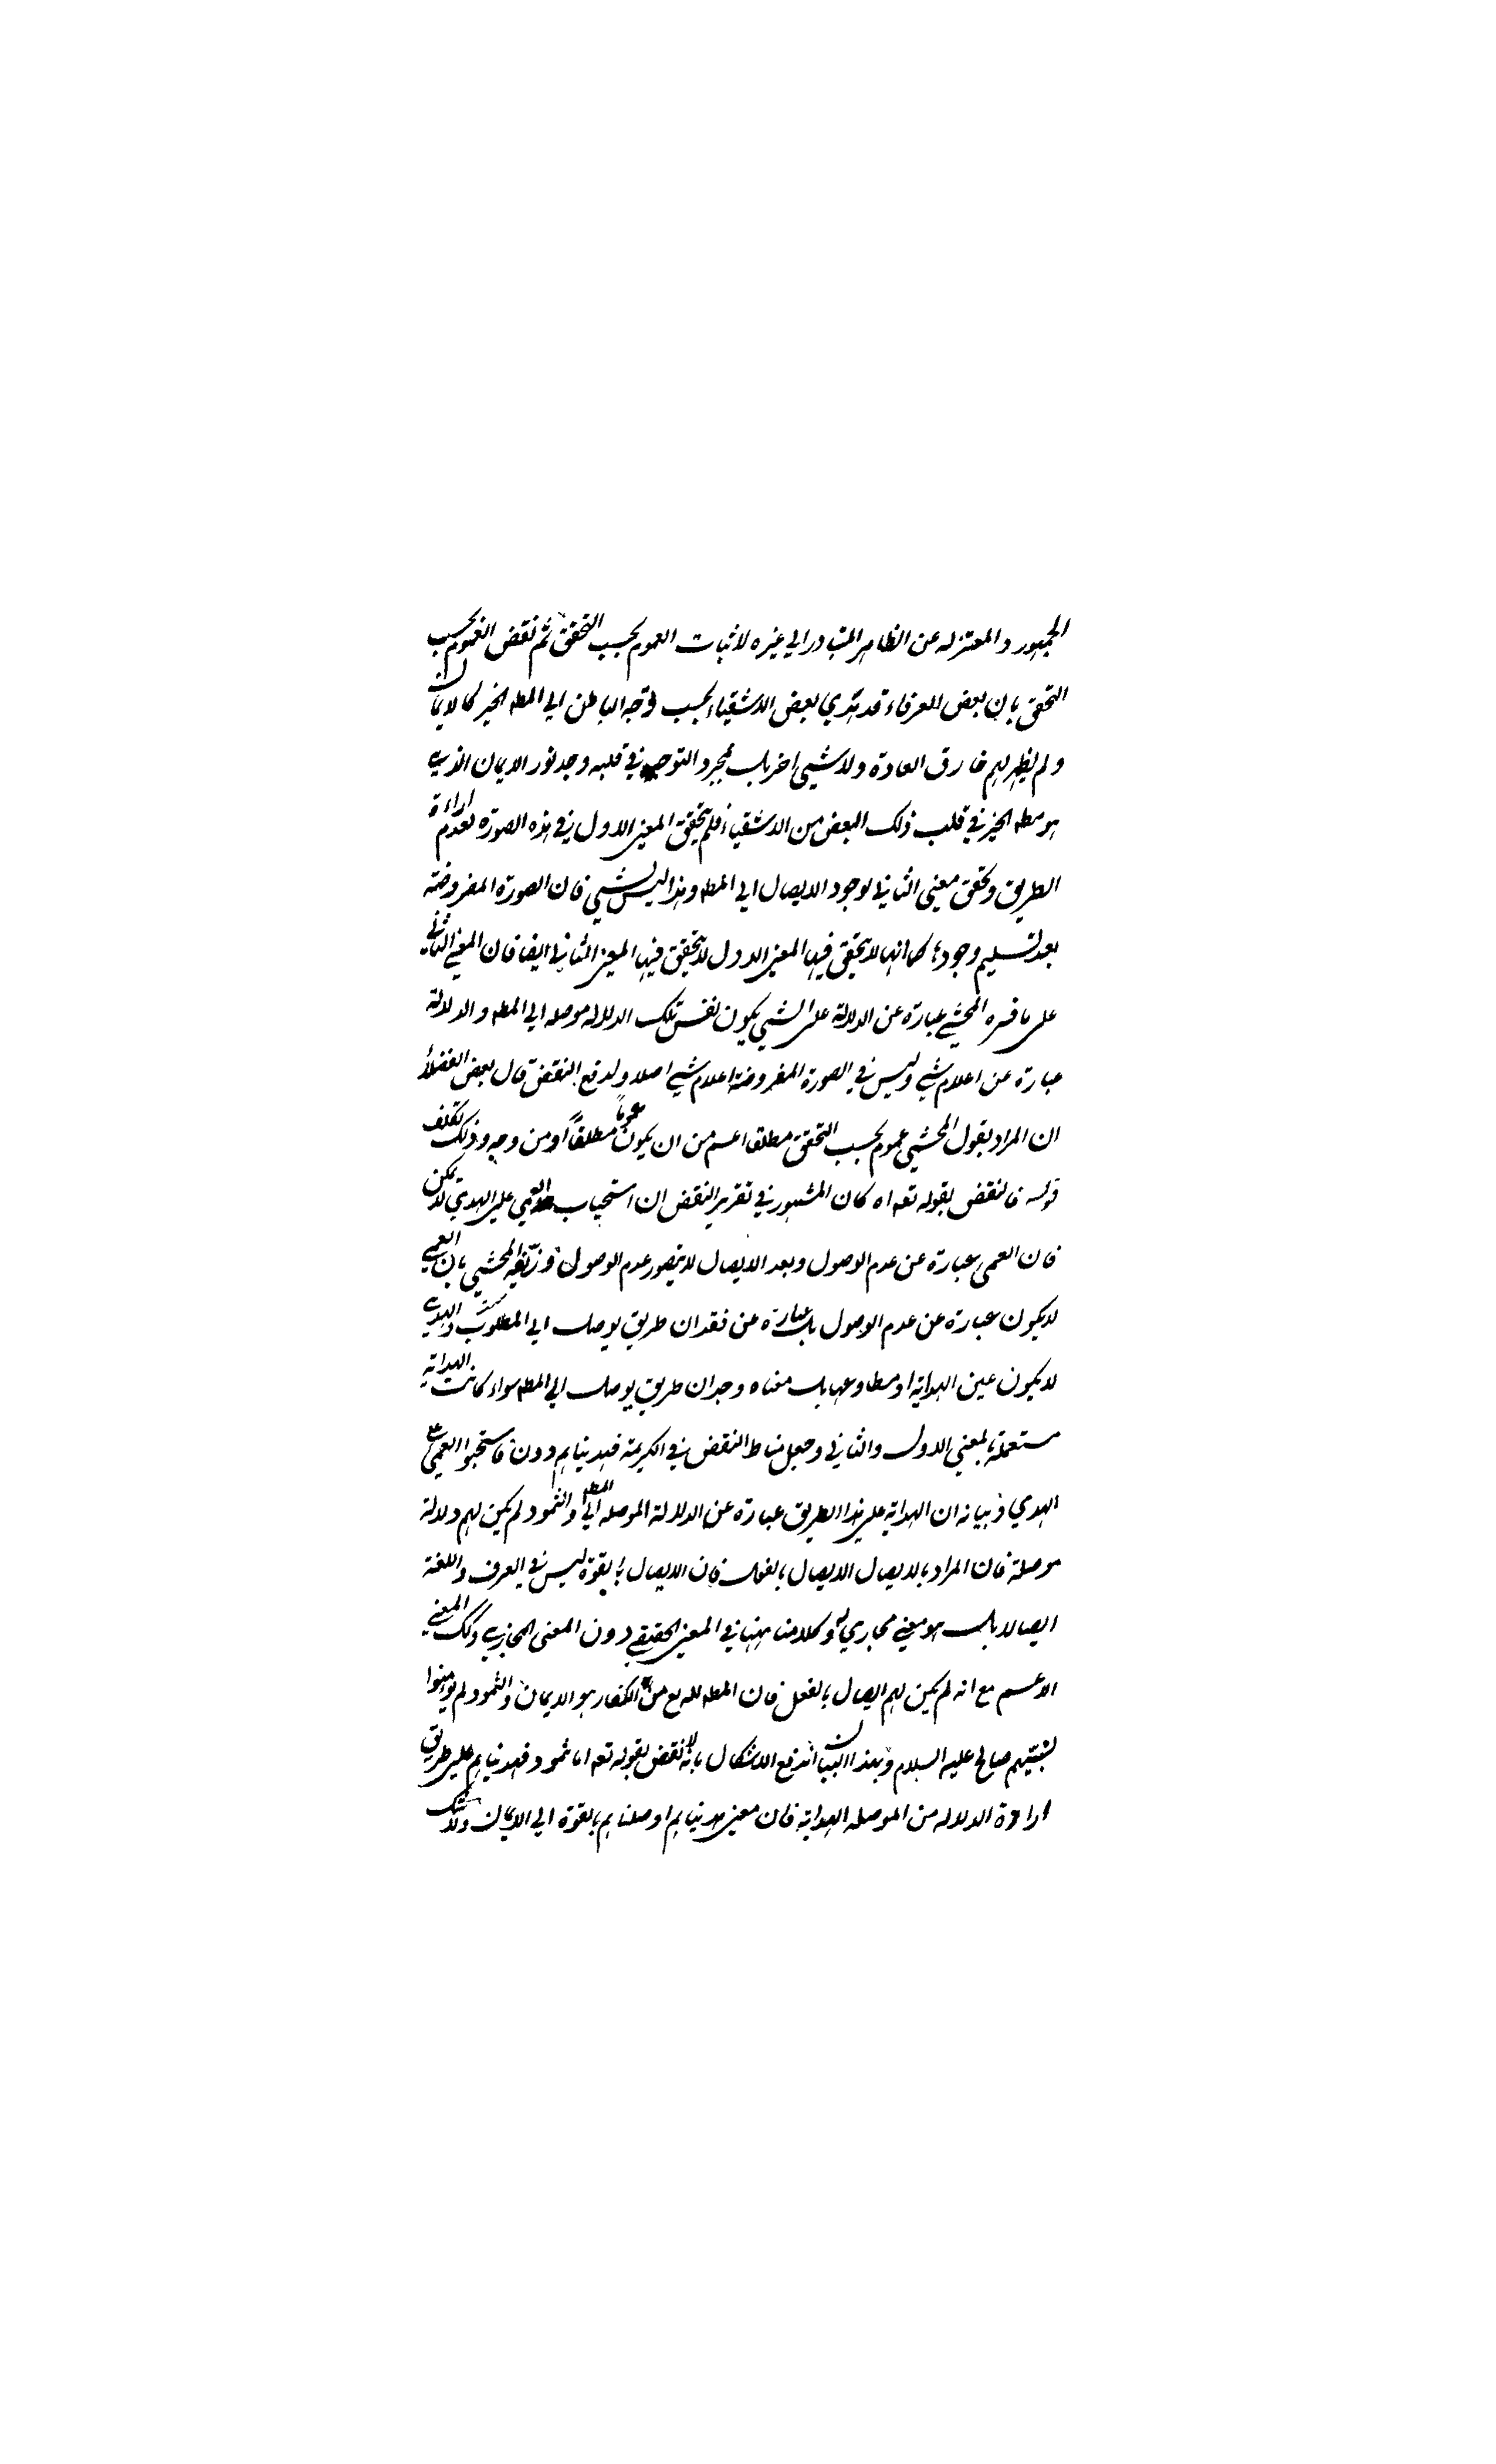 الجمهور والمعتزله عن الظاهر المتبادر الي غيره لاثبات العموم بحسب التحقق ثم نقض العموم بحسب
التحقق بان بعض العرفاء قد يهدي بعض الاشقياء بحسب توجه الباطن الي المطـ الخير كالايمان
ولم يظهر لهم خارق العادة ولا شيئ اخر بل بمجرد التوجه في قلبه وجد نور الايمان الذي
هو مطـ الخير في قلب ذلك البعض من الاشقياء فلم يتحقق المعني الاول في هذه الصورة لعدم اراءة
الطريق وتحقق معني الثاني لوجود الايصال الي المطـ وهذا ليس بشيئ فان الصورة المفروضة
بعد تسليم وجودها كما انها لا يتحقق فيها المعني الاول لا يتحقق فيها المعني الثاني ايضا فان المعني الثاني
علي ما فسره المحشي عبارة عن الدلالة علي الشيئ يكون نفس تلك الدلاله موصله الي المطـ والدلالة
عبارة عن اعلام شيئ وليس في الصورة المفروضة اعلام شيئ اصلا ولدفع النقض قال بعض الفضلاء
ان المراد بقول المحشي عموم بحسب التحقق مطلقا اعم من ان يكون عموما مطلقا او من وجه وذلك تكلف
قوله فالنقض بقوله تعـ اه كان المشهور في تقرير النقض ان استحباب العمي علي الهدي لا يمكن
فان العمي عبارة عن عدم الوصول وبعد الايصال لا يتصور عدم الوصول وزيفه المحشي بان العمي
لا يكون عبارة عن عدم الوصول بل عبارة عن فقدان طريق يوصل الي المطلوب والهدي
لا يكون عين الهداية او مطاوعها بل معناه وجدان طريق يوصل الي المطـ سواء كانت الهداية
مستعملة بمعني الاول والثاني وجعل مناط النقض في الكريمة فهديناهم دون فاستحبوا العمي علي
الهدي وبيانه ان الهداية علي هذا الطريق عبارة عن الدلالة الموصله الي المطـ والثمود لم يكن لهم دلالة
موصلة فان المراد بالايصال الايصال بالفعل فان الايصال بالقوة ليس في العرف واللغة
ايصالا بل هو معني مجازي له وكلامنا ههنا في المعني الحقيقي دون المعني المجازي وذلك المعني
الاعم مع انه لم يكن لهم ايصال بالفعل فان المطـ من الكفار هو الايمان والثمود لم يؤمنوا
بنبيهم صالح عليه السلام وبهذا البيان اندفع الاشكال بانه لا نقض بقوله تعـ اما ثمود فهديناهم علي طريق
ارادة الدلاله من الموصله الهداية فان معني هديناهم اوصلناهم بالقوة الي الايمان ولا شك